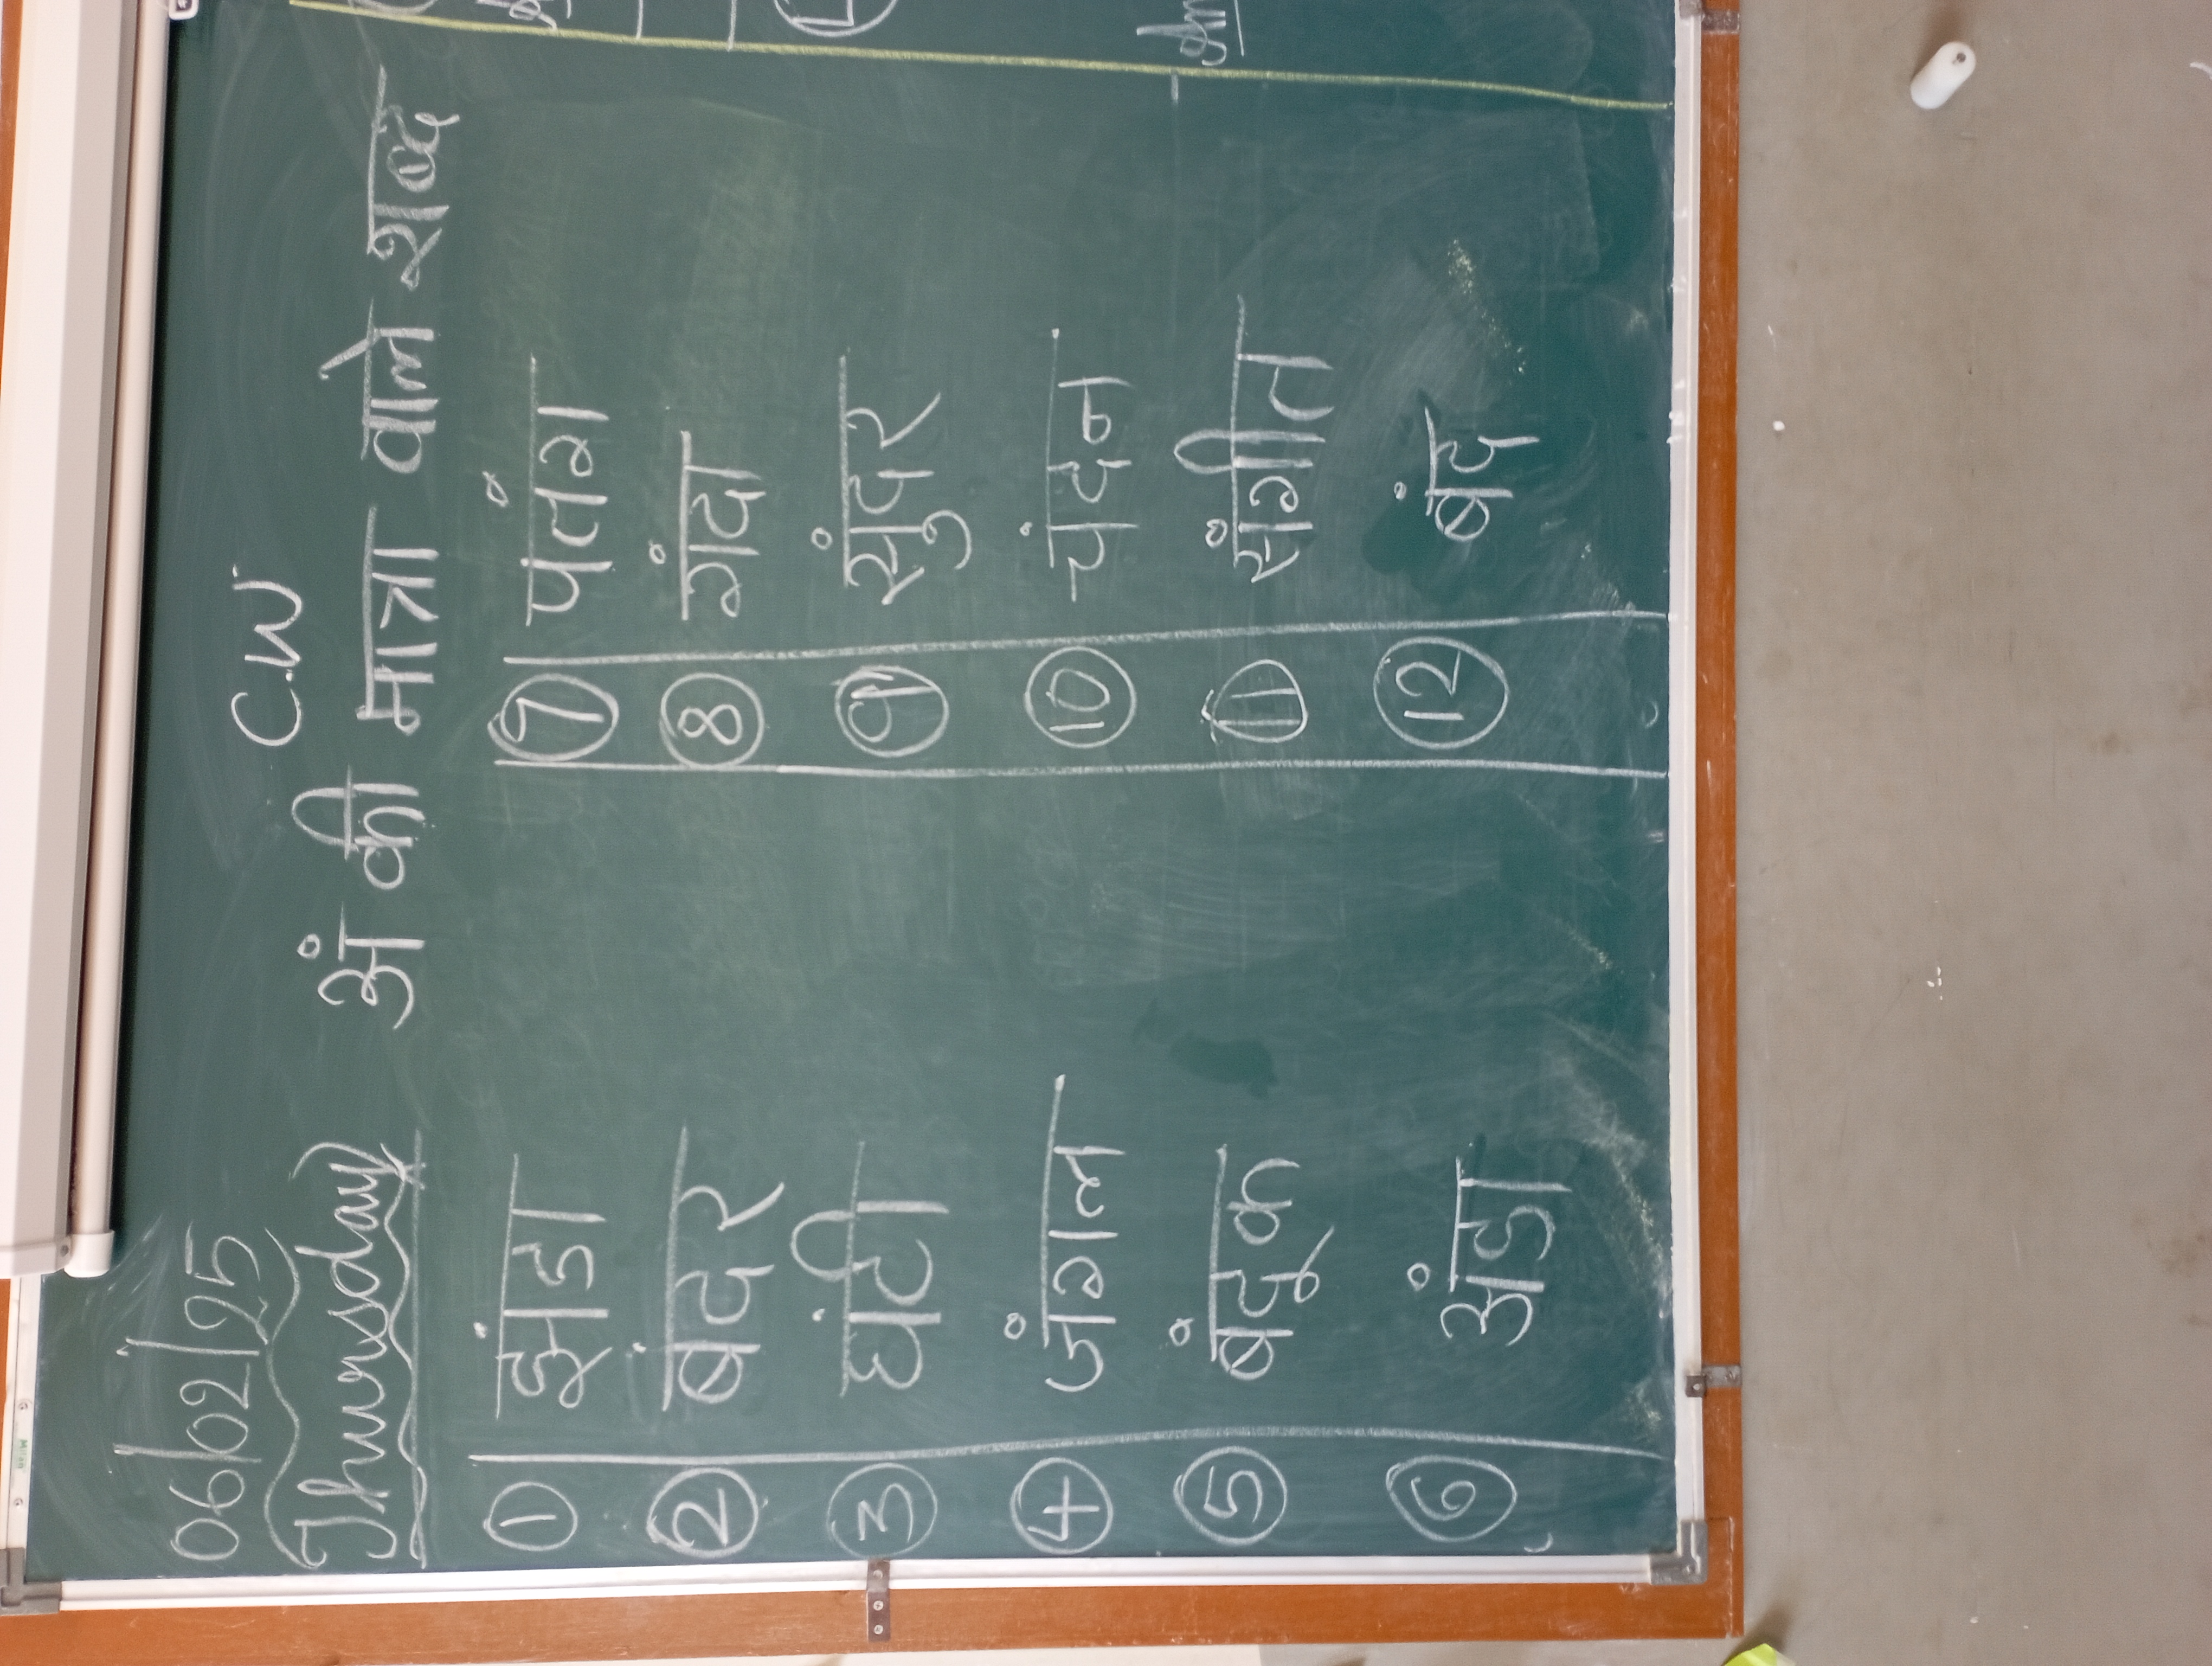 06/02/25
C.W
Thursday
अं की मात्रा वाले शब्द
1 झंडा
2 बंदर
3 घंटी
4 जंगल
5 बंदूक
6 अंडा
7 पतंग
8 गंदा
9 सुंदर
10 चंदन
11 संगीत
12 बंद